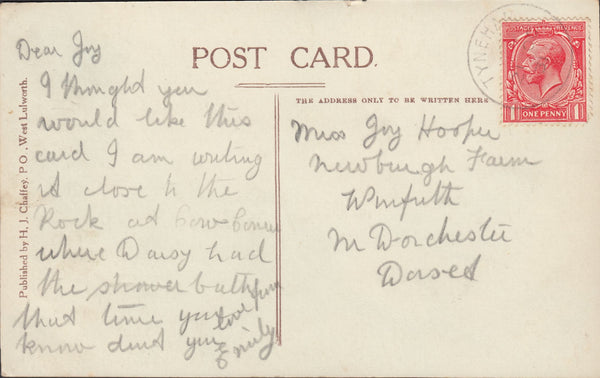 Dear Joy
POST CARD.
I thought you
would like this
card I am writing
it close to the
Rock at
where Daisy had
the shower bath
that time you
know dont you
love from
Emily
THE ADDRESS ONLY TO BE WRITTEN HERE
Miss Joy Hooper
Newburgh Farm
Winfrith
Nr Dorchester
Dorset
Published by H. J. Chaffey, P.O., West Lulworth.
TYNEHAM
POSTAGE REVENUE
1 ONE PENNY 1